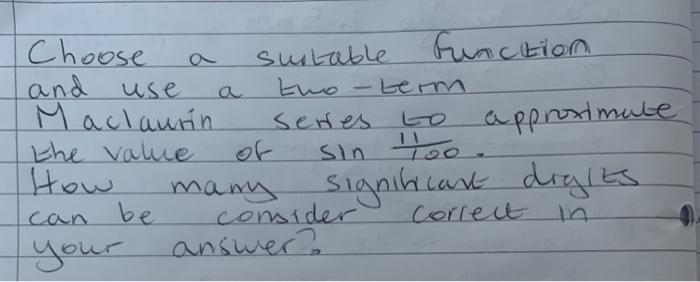 Choose a suitable function
and use a two-term
Maclaurin series to approximate
the value of sin 11/100.
How many significant digits
can be consider correct in
your answer?